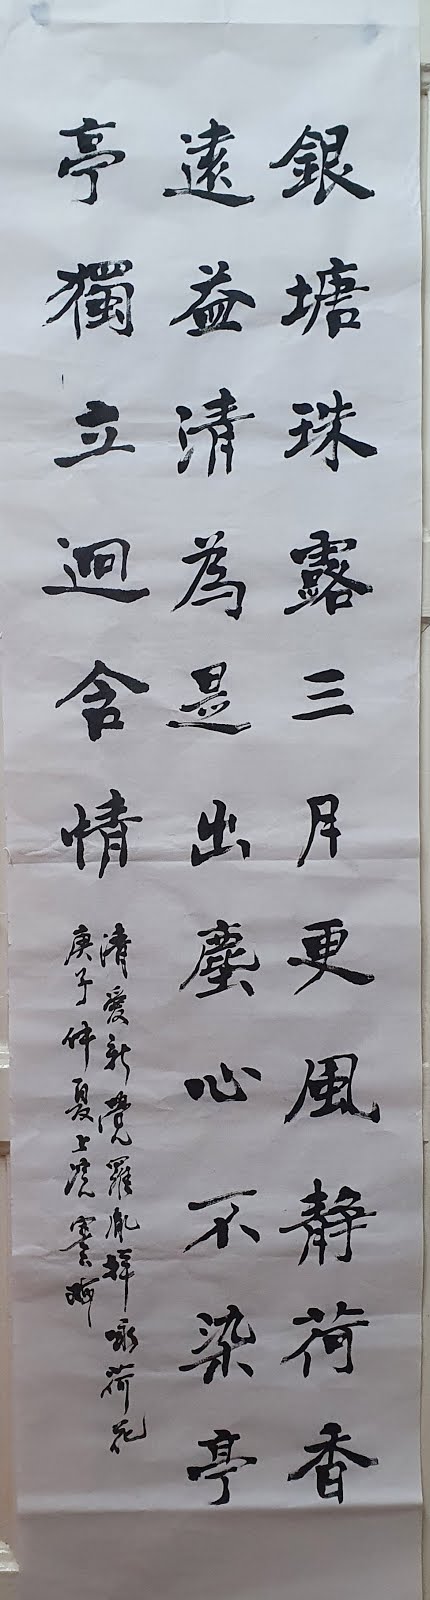 銀塘珠露三月更風静荷香
遠益清為是出塵心不染亭
亭獨立迥含情
清爱新覺羅胤禛咏荷花
庚子仲夏上浣